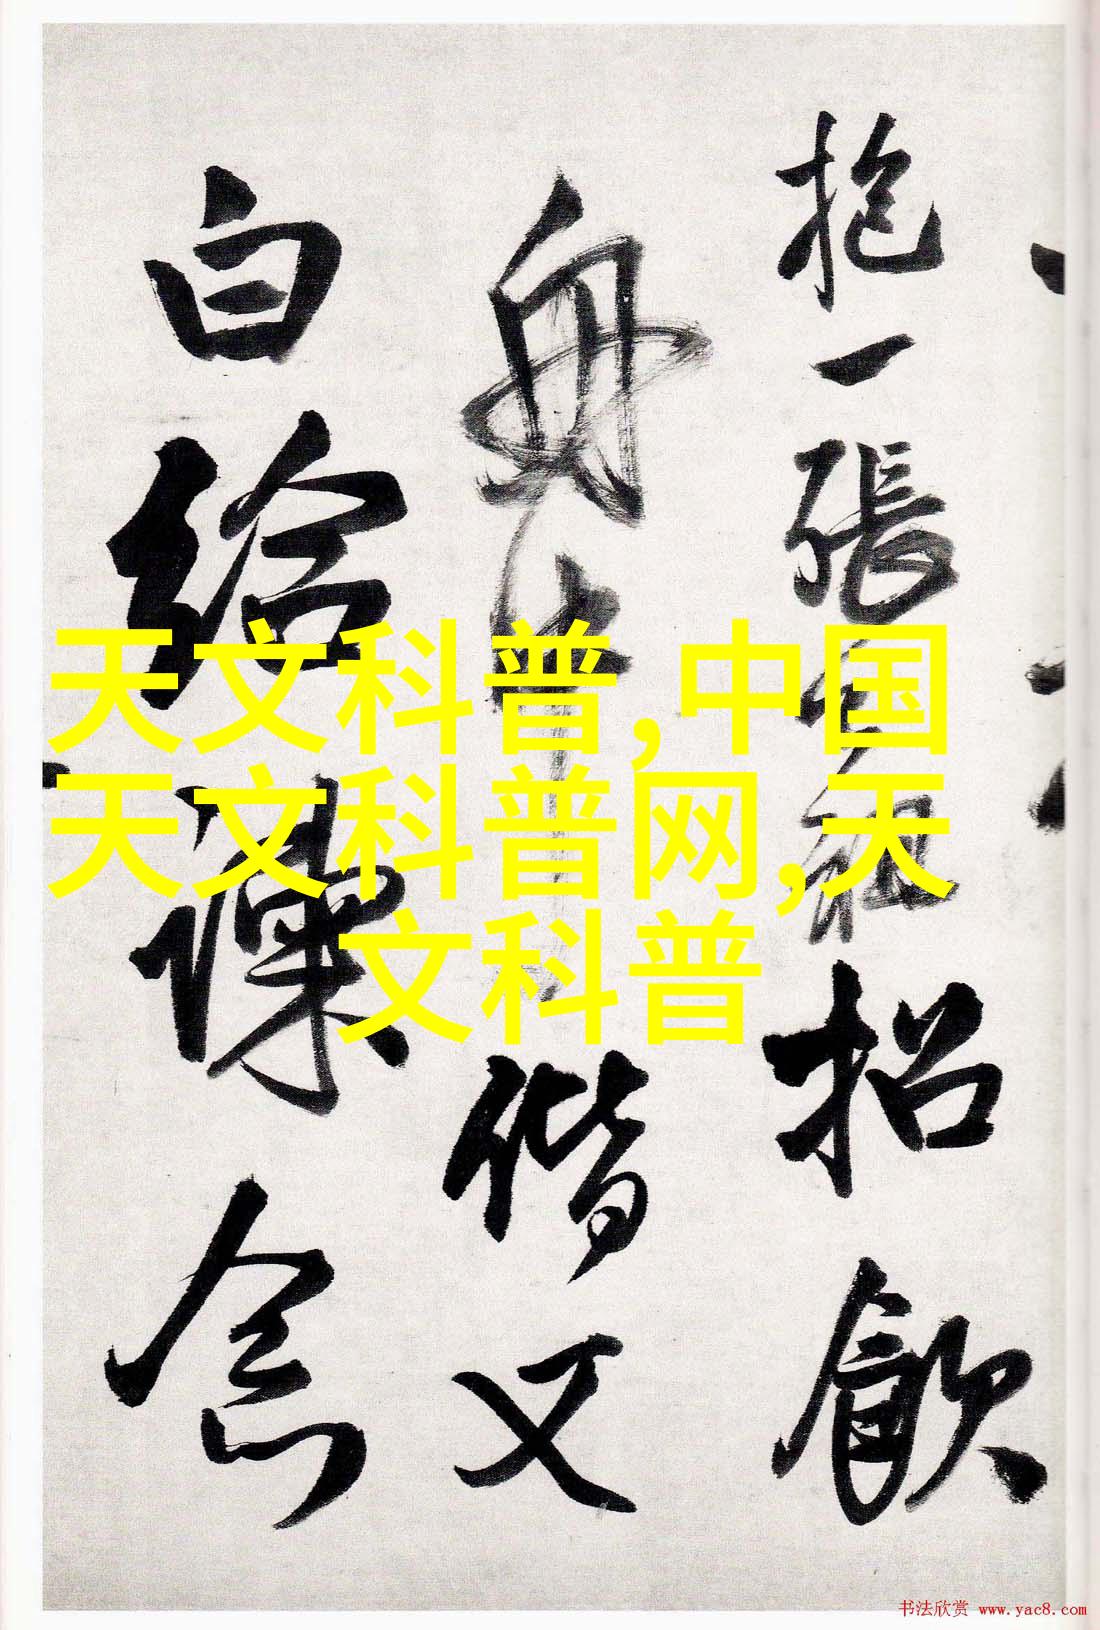 抱一張
招飲
舟中偕又
白給諫念
天文科普,中国
天文科普网,天
文科普
书法欣赏 www.yac8.com